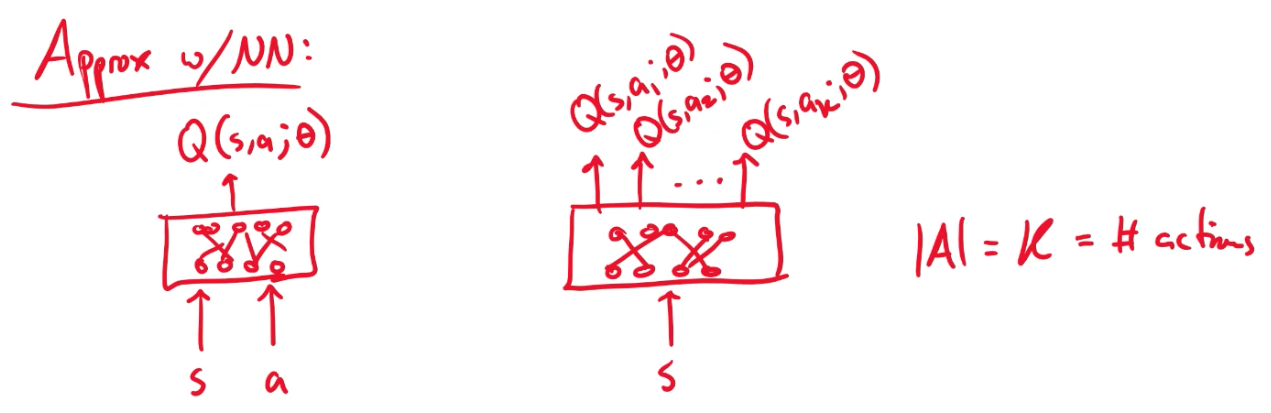 Approx w/NN:
Q(s,a;θ)
s a
Q(s,a,;θ)
Q(s,a₂;θ)
...
Q(s,aₖ;θ)
s
|A| = K = # actions